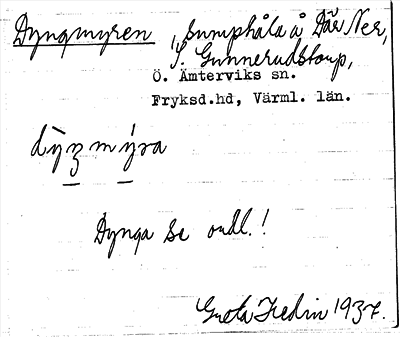 Dyngmyren, sumphåla å Där Ner,
S. Gunnerudstorp,
Ö. Ämterviks sn.
Fryksd.hd, Värml. län.
Dynga se ordl.!
Greta Hedin 1937.